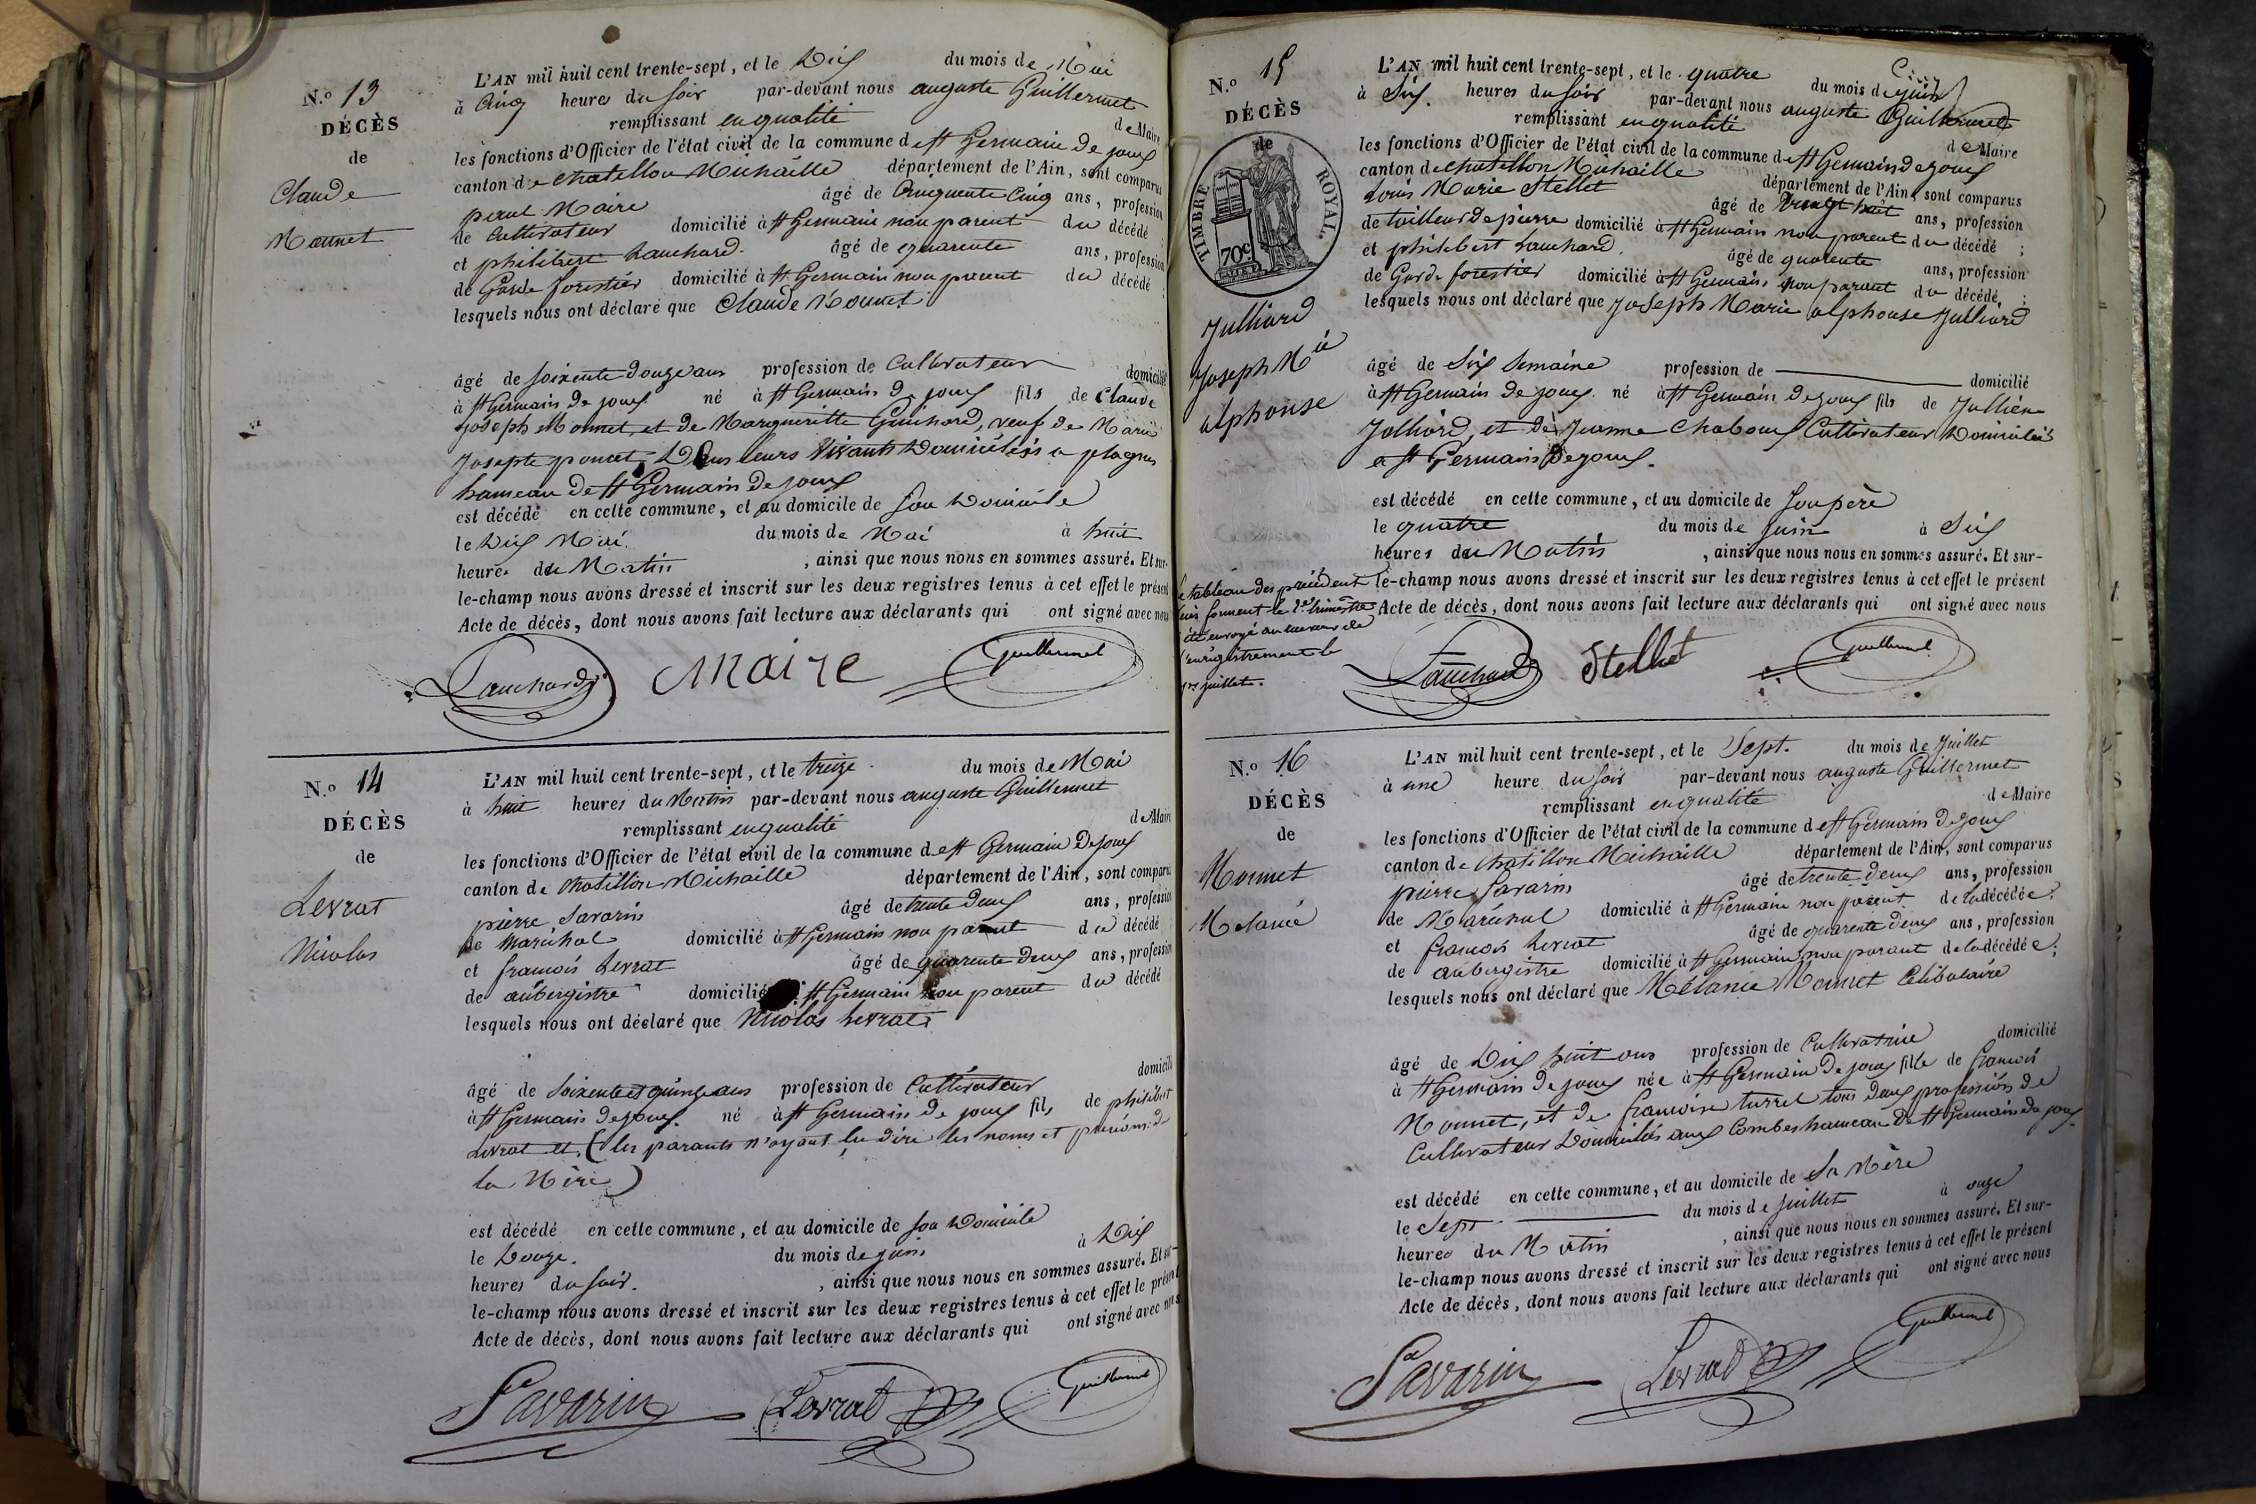 N.º 13
DÉCÈS
de
Claude
Monnet
L'AN mil huit cent trente-sept, et le Dix du mois de Mai
à Cinq heures du soir par-devant nous auguste Guillermet
remplissant en qualité de Maire
les fonctions d'Officier de l'état civil de la commune de St Germain de joux
canton de chatillon Michaille département de l'Ain, sont comparus
paul Maire âgé de Cinquante Cinq ans, profession
de Cultivateur domicilié à St Germain non parent du décédé ;
et philibert Lanchard âgé de quarente ans, profession
de Garde forestier domicilié à St Germain non parent du décédé ;
lesquels nous ont déclaré que Claude Monnet
âgé de soixente douze ans profession de Cultivateur domicilié
à St Germain de joux né à St Germain de joux fils de Claude
joseph Monnet, et de Margueritte Guinard, veuf de Marie
josepte poncet, Dans leurs Vivants Domiciliés a plagnes
hameau de St Germain de joux
est décédé en cette commune, et au domicile de son Domicile
le Dix Mai du mois de Mai à huit
heures du Matin , ainsi que nous nous en sommes assuré. Et sur-
le-champ nous avons dressé et inscrit sur les deux registres tenus à cet effet le présent
Acte de décès, dont nous avons fait lecture aux déclarants qui ont signé avec nous
Lanchard Maire Guillermet
N.º 14
DÉCÈS
de
Levrat
Nicolas
L'AN mil huit cent trente-sept, et le treize du mois de Mai
à huit heures du Matin par-devant nous auguste Guillermet
remplissant en qualité de Maire
les fonctions d'Officier de l'état civil de la commune de St Germain De joux
canton de chatillon Michaille département de l'Ain, sont comparus
pierre Savarin âgé de trente deux ans, profession
de Maréchal domicilié à St Germain non parent du décédé
et francois Levrat âgé de quarente deux ans, profession
de aubergiste domicilié St Germain non parent du décédé
lesquels nous ont déclaré que Nicolas Levrat
âgé de soixente et quinze ans profession de Cultivateur domicilié
à St Germain de joux né à St Germain de joux fils de philibert
Levrat et (les parants n'ayant su dire les noms et prénoms de
la Mère)
est décédé en cette commune, et au domicile de son Domicile
le Douze. du mois de juin à Dix
heures du soir. , ainsi que nous nous en sommes assuré. Et sur-
le-champ nous avons dressé et inscrit sur les deux registres tenus à cet effet le présent
Acte de décès, dont nous avons fait lecture aux déclarants qui ont signé avec nous
Savarin Levrat Guillermet
N.º 15
DÉCÈS
de
TIMBRE ROYAL.
70c.
Julliard
Joseph Mie
alphonse
L'AN mil huit cent trente-sept, et le quatre du mois de juin
à Six heures du soir par-devant nous auguste Guillermet
remplissant en qualité de Maire
les fonctions d'Officier de l'état civil de la commune de St Germain de joux
canton de chatillon Michaille département de l'Ain, sont comparus
Louis Marie Stellet âgé de Vingt huit ans, profession
de tailleur de pierre domicilié à St Germain non parent du décédé ;
et philibert Lanchard. âgé de quarente ans, profession
de Garde forestier domicilié à St Germain non parent du décédé, ;
lesquels nous ont déclaré que Joseph Marie alphonse Julliard
âgé de Six Semaine profession de domicilié
à St Germain de joux né à St Germain de joux fils de Jullien
Julliard, et de Jeanne Chaboux Cultivateur Domiciliés
a St Germain De joux.
est décédé en cette commune, et au domicile de Son père
le quatre du mois de juin à Six
heures du Matin , ainsi que nous nous en sommes assuré. Et sur-
le-champ nous avons dressé et inscrit sur les deux registres tenus à cet effet le présent
Acte de décès, dont nous avons fait lecture aux déclarants qui ont signé avec nous
tableau des précédent
forment le 2e trimestre
été envoyé au receveur de
l'enregistrement le
1er juillet.
Lanchard Stellet Guillermet
N.º 16
DÉCÈS
de
Monnet
Melanie
L'AN mil huit cent trente-sept, et le Sept. du mois de Juillet
à une heure du soir par-devant nous auguste Guillermet
remplissant en qualité de Maire
les fonctions d'Officier de l'état civil de la commune de St Germain De joux
canton de chatillon Michaille département de l'Ain, sont comparus
pierre Savarin âgé de trente deux ans, profession
de Maréchal domicilié à St Germain non parent de la décédée ;
et francois Levrat âgé de quarente deux ans, profession
de aubergiste domicilié à St Germain non parant de la décédée ;
lesquels nous ont déclaré que Mélanie Monnet Célibataire
âgé de Dix huit ans profession de Cultivatrice domicilié
à St Germain de joux née à St Germain De joux fille de francois
Monnet, et de francoise turrel tous Deux profession de
Cultivateur Domiciliés aux Combes hameau De St Germain de joux.
est décédé en cette commune, et au domicile de Sa Mère
le Sept du mois de Juillet à onze
heures du Matin , ainsi que nous nous en sommes assuré. Et sur-
le-champ nous avons dressé et inscrit sur les deux registres tenus à cet effet le présent
Acte de décès, dont nous avons fait lecture aux déclarants qui ont signé avec nous
Savarin Levrat Guillermet